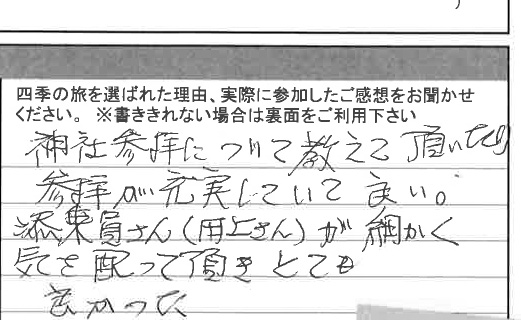 四季の旅を選ばれた理由、実際に参加したご感想をお聞かせ
ください。 ※書ききれない場合は裏面をご利用下さい
神社参拝について教えて頂いたり
参拝が充実していて良い。
添乗員さん(用上さん)が細かく
気を配って頂きとても
良かった